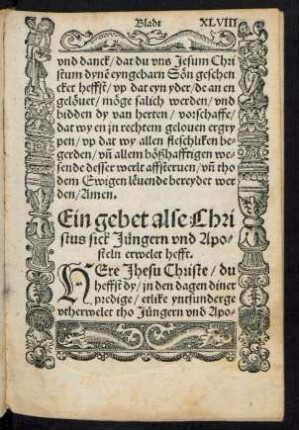 Bladt XLVIII
vnd danck/ dat du vns Jesum Chri
stum dynē eyngebarn Sön geschen
cket heffst/ vp dat eyn yder/ de an en
gelöuet/ möge salich werden/ vnd
bidden dy van herten/ vorschaffe/
dat wy en jn rechtem gelouen ergry
pen/ vp dat wy allen fleschliken be-
gerden/ vn̄ allem bößhafftigen we-
sende desser werlt affsteruen/ vn̄ tho
dem Ewigen leuende bereydet wer
den/ Amen.
Ein gebet alse Chri
stus sick Jüngern vnd Apo-
steln erwelet hefft.
HEre Jhesu Christe/ du
heffst dy/ jn den dagen diner
predige/ etlike ynt sunderge
vtherwelet tho Jüngern vnd Apo-